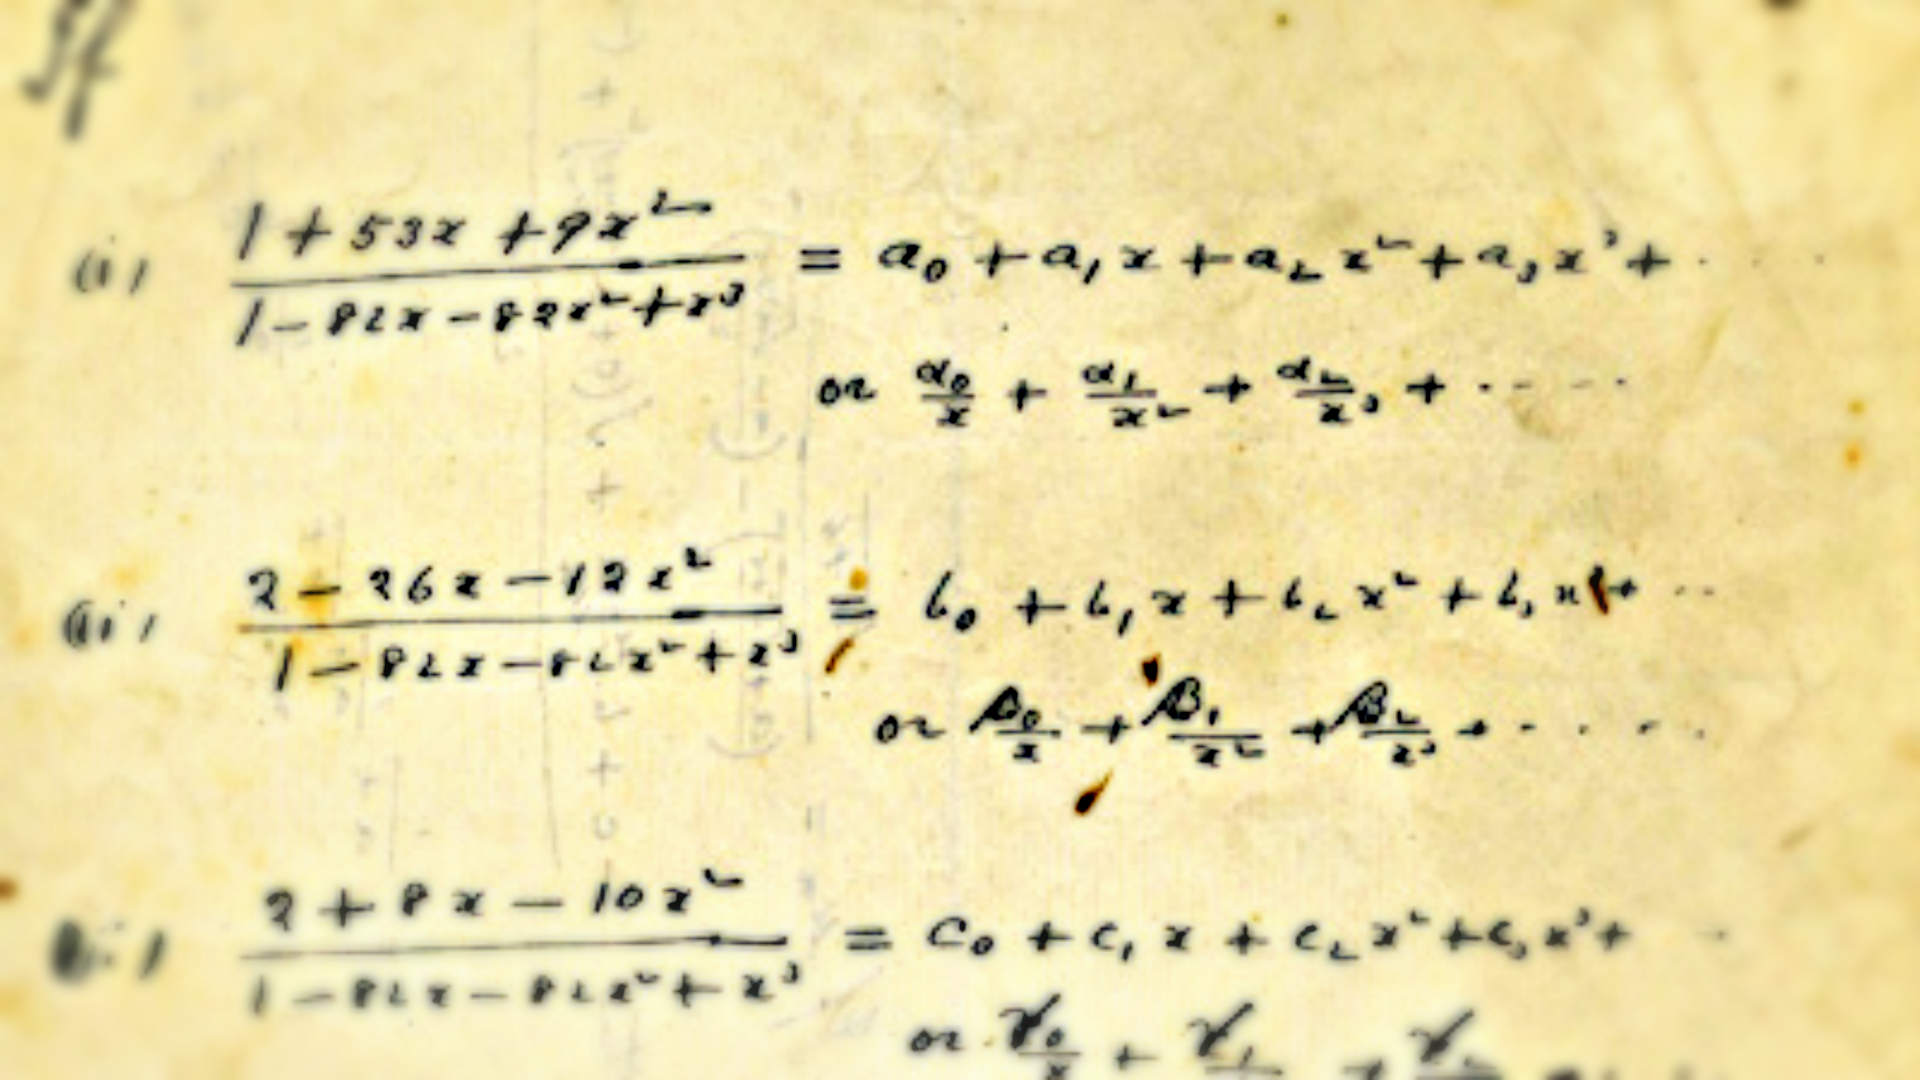 If
(i) (1 + 53x + 9x²)/(1 - 82x - 82x² + x³) = a₀ + a₁x + a₂x² + a₃x³ + ....
or α₀/x + α₁/x² + α₂/x³ + .....
(ii) (2 - 26x - 12x²)/(1 - 82x - 82x² + x³) = b₀ + b₁x + b₂x² + b₃x³ + ..
or β₀/x + β₁/x² + β₂/x³ + .....
(iii) (2 + 8x - 10x²)/(1 - 82x - 82x² + x³) = c₀ + c₁x + c₂x² + c₃x³ + ..
or γ₀/x + γ₁ +